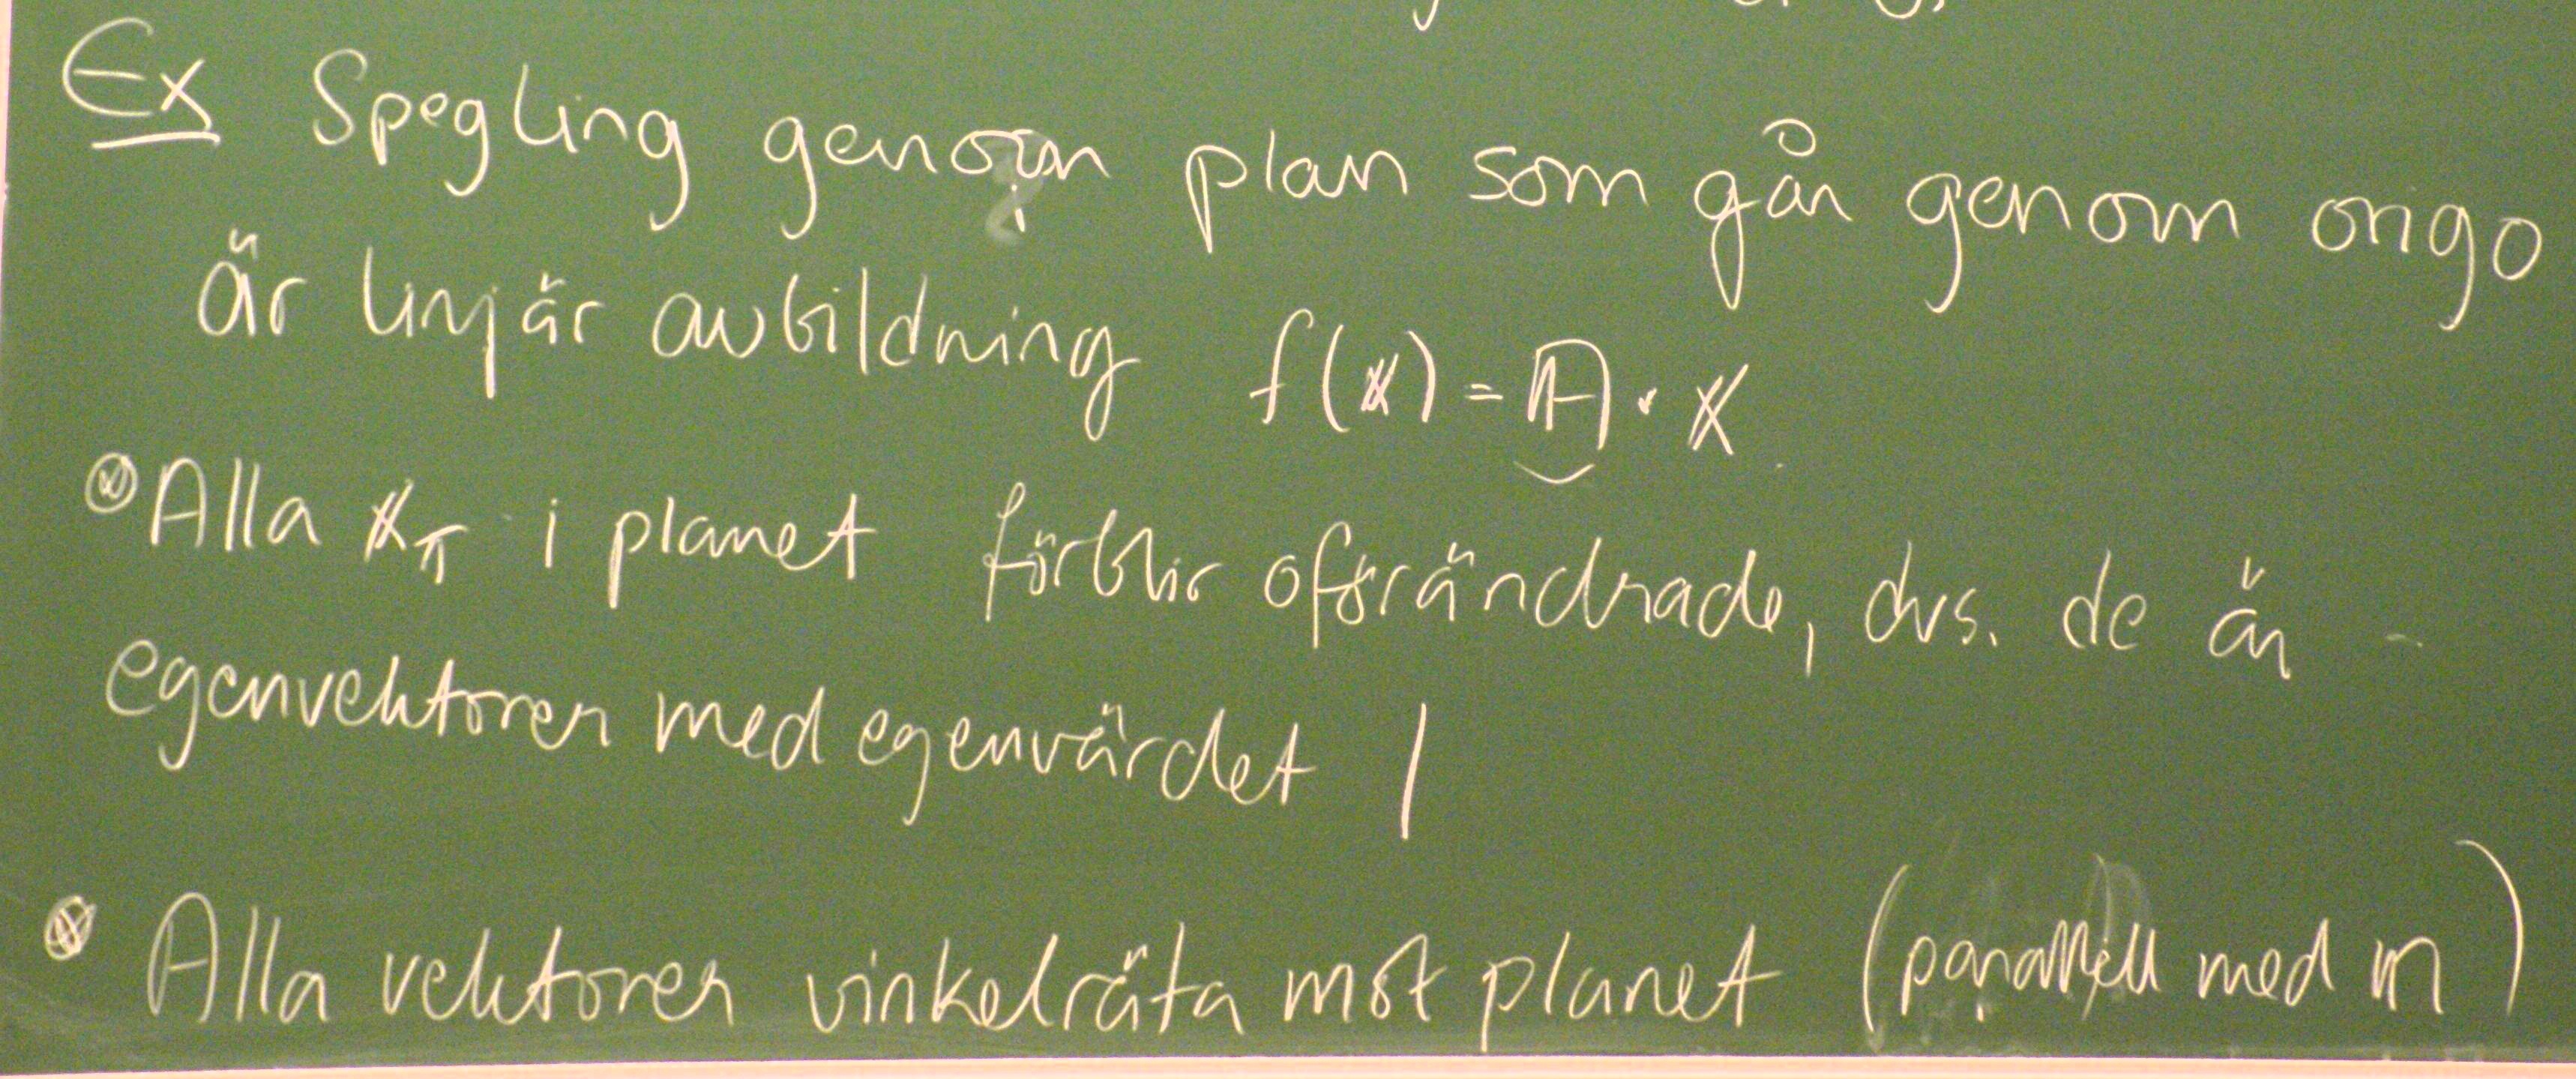 Ex Spegling genom plan som går genom origo
är linjär avbildning f(𝕩) = 𝔸 · 𝕩
Alla 𝕩π i planet förblir oförändrade, dvs. de är
egenvektorer med egenvärdet 1
Alla vektorer vinkelräta mot planet (parallell med 𝕟)